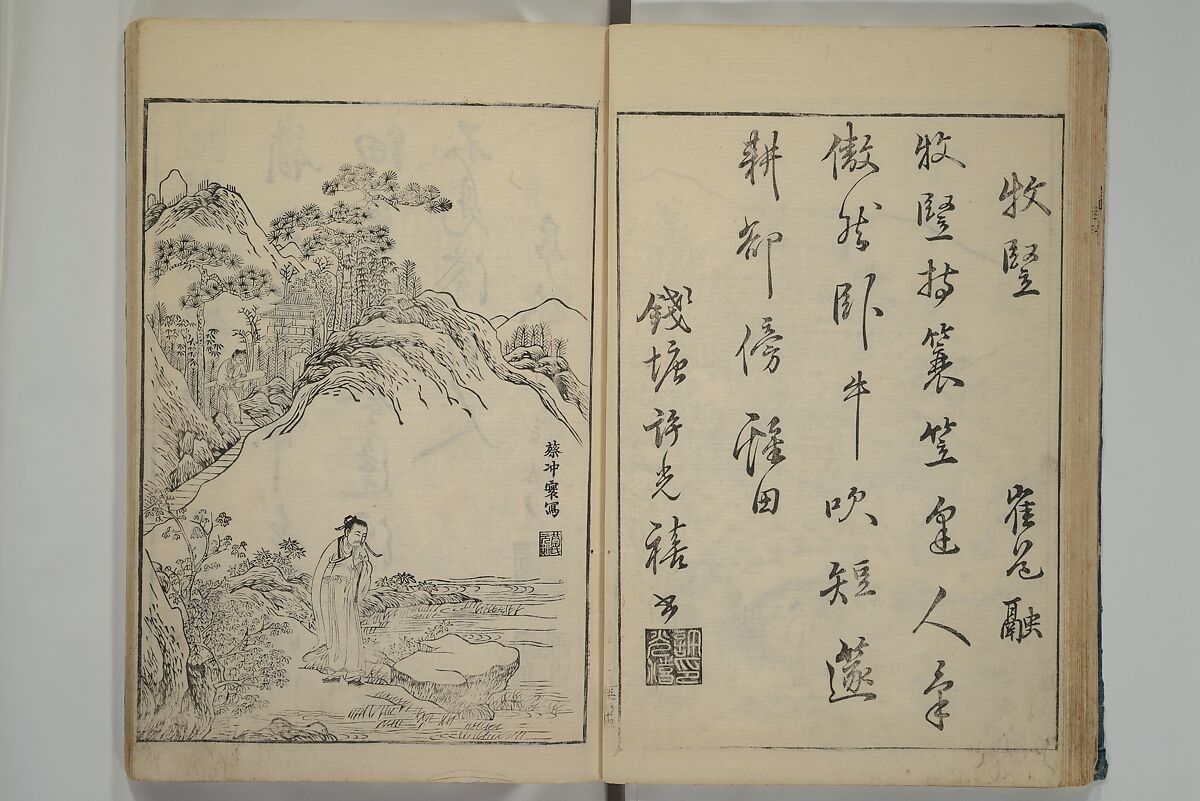 牧豎 崔道融
牧豎持蓑笠逢人氣
傲然卧牛吹短篴
耕卻傍谿田
錢塘許光禧書
蔡冲寰寫